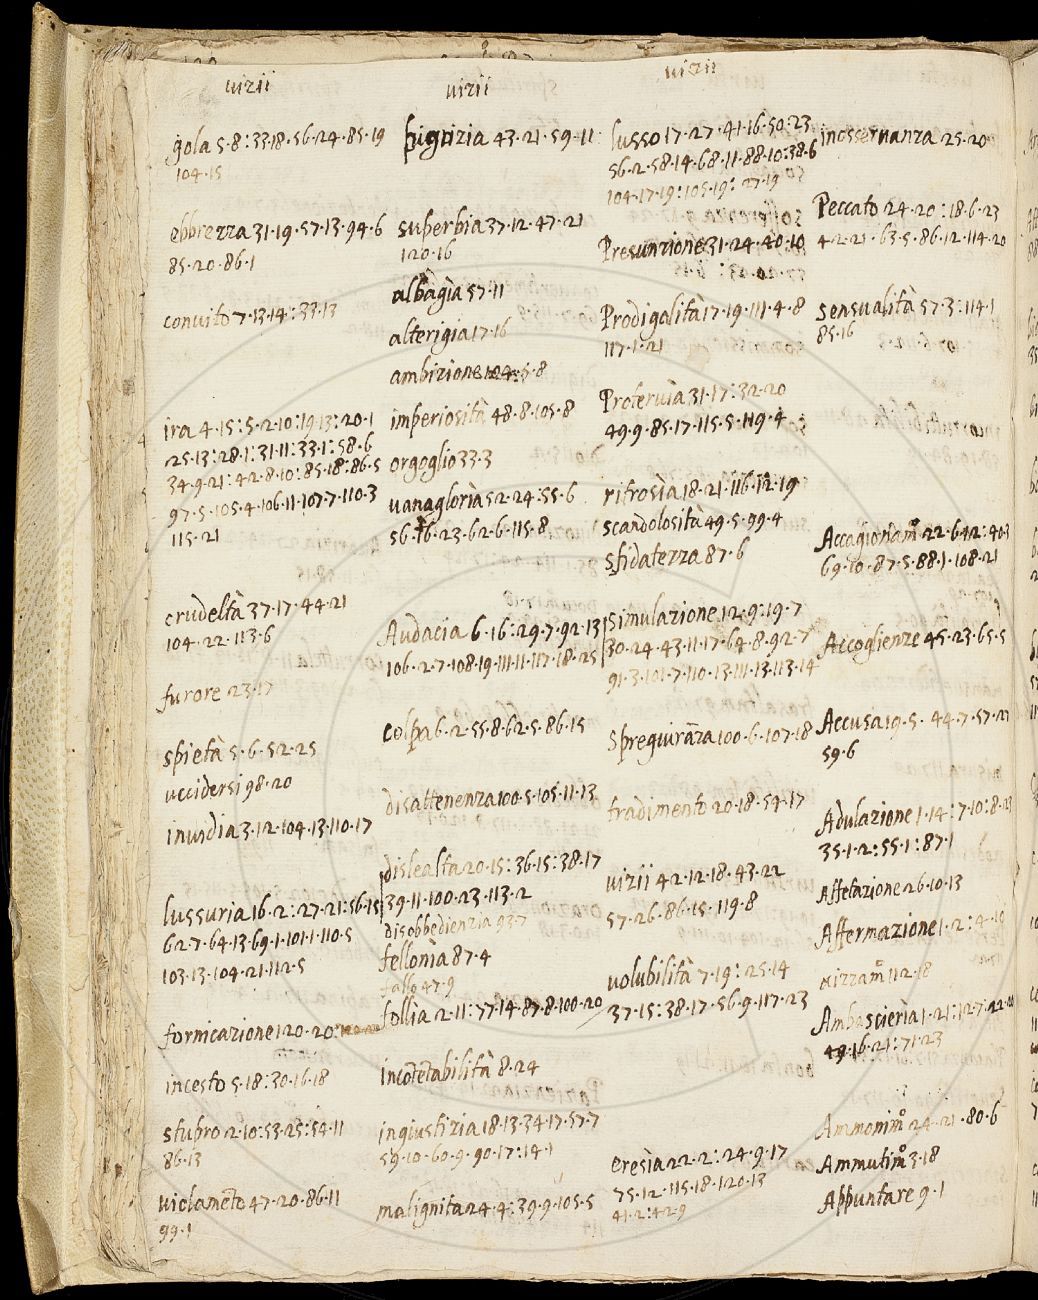 vizii
gola 5·8:33·18·56·24·85·19
104·15
ebbrezza 31·19·57·13·94·6
85·20·86·1
convito 7·13·14:33·13
ira 4·15:5·2·10:19·13:20·1
25·13:28·1:31·11:33·1:58·6
34·9·21:42·8·10:85·18:86·5
97·5·105·4·106·11·107·7·110·3
115·21
crudeltà 37·17·44·21
104·22·113·6
furore 23·17
spietà 5·6·52·25
uccidersi 98·20
invidia 3·12·104·13·110·17
lussuria 16·2:27·21:56·15
62·7·64·13·69·1·101·1·110·5
103·13·104·21·112·5
fornicazione 120·20
incesto 5·18:30·16·18
stupro 2·10:53·25:54·11
86·13
violamẽto 47·20·86·11
99·1
vizii
pigrizia 43·21·59·11
superbia 37·12·47·21
120·16
albagìa 57·11
alterigia 17·16
ambizione 5·8
imperiosità 48·8·105·8
orgoglio 33·3
vanagloria 52·24:55·6
56·16·23·62·6·115·8
Audacia 6·16:29·7·92·13
106·2·7·108·19·111·11·117·18·25
colpa 6·2·55·8·62·5·86·15
disattenenza 100·5·105·11·13
dislealta 20·15:36·15:38·17
39·11·100·23·113·2
disobbedienzia 93·7
fellonìa 87·4
fallo 47·9
follia 2·11:77·14·87·8·100·20
incõtẽtabilità 8·24
ingiustizia 18·13·34·17·57·7
59·10·60·9·90·17:14·1
malignita 24·4:39·9·105·5
vizii
lusso 17·27·41·16·50:23
56·2·58·14·68·11·88·10:38·6
104·17·19:105·19:27·19
Presunzione 31·24·40·10
Prodigalità 17·19·111·4·8
117·1·21
Protervìa 31·17:32·20
49·9·85·17·115·5·119·4
ritrosìa 18·21·116·12·19
scandolosità 49·5·99·4
sfidatezza 87·6
simulazione 12·9:19·7
30·24·43·11·17·64·8·92·7
91·3·101·7·110·13·111·13·113·14
spregiurãza 100·6·107·18
tradimento 20·18·54·17
vizii 42·12·18·43·22
57·26·86·15·119·8
volubilità 7·19:25·14
37·15:38·17·56·9·117·23
eresìa 22·2:24·9·17
75·12·115·18·120·13
41·2:42·9
inosservanza 25·20
Peccato 24·20:18·6·23
42·21·63·5·86·12·114·20
sensualità 57·3:114·1
85·16
Accagionam̊ 22·6·42:40·1
69·10·87·5·88·1·108·21
Accoglienze 45·23·65·5
Accusa 19·5·44·7·57·27
59·6
Adulazione 1·14:7·10:8·23
35·1·2:55·1:87·1
Affetazione 26·10·13
Affermazione 1·2:4·19
aizzam̊ 112·18
Ambascierìa 1·21:12·7·22·11
48·16·21:71·23
Ammonim̊ 24·21·80·6
Ammutim̊ 3·18
Appuntare 9·1